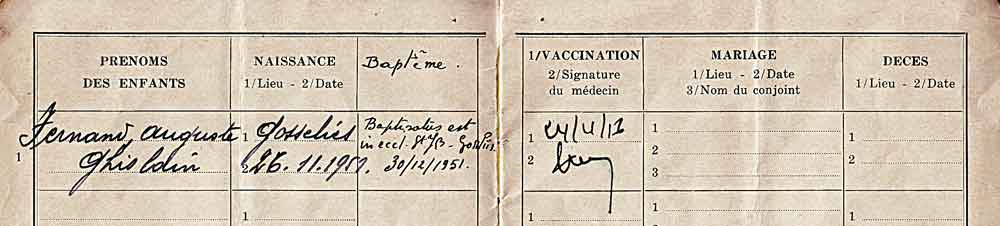 PRENOMS
DES ENFANTS
NAISSANCE
1/Lieu - 2/Date
Baptême.
1/VACCINATION
2/Signature
du médecin
MARIAGE
1/Lieu - 2/Date
3/Nom du conjoint
DECES
1/Lieu - 2/Date
1
Fernand, Auguste
Ghislain
1 Gosselies
2 26.11.1951.
Baptizatus est
in eccl.
30/12/1951.
1
2
1
2
3
1
2
1
1
2
1